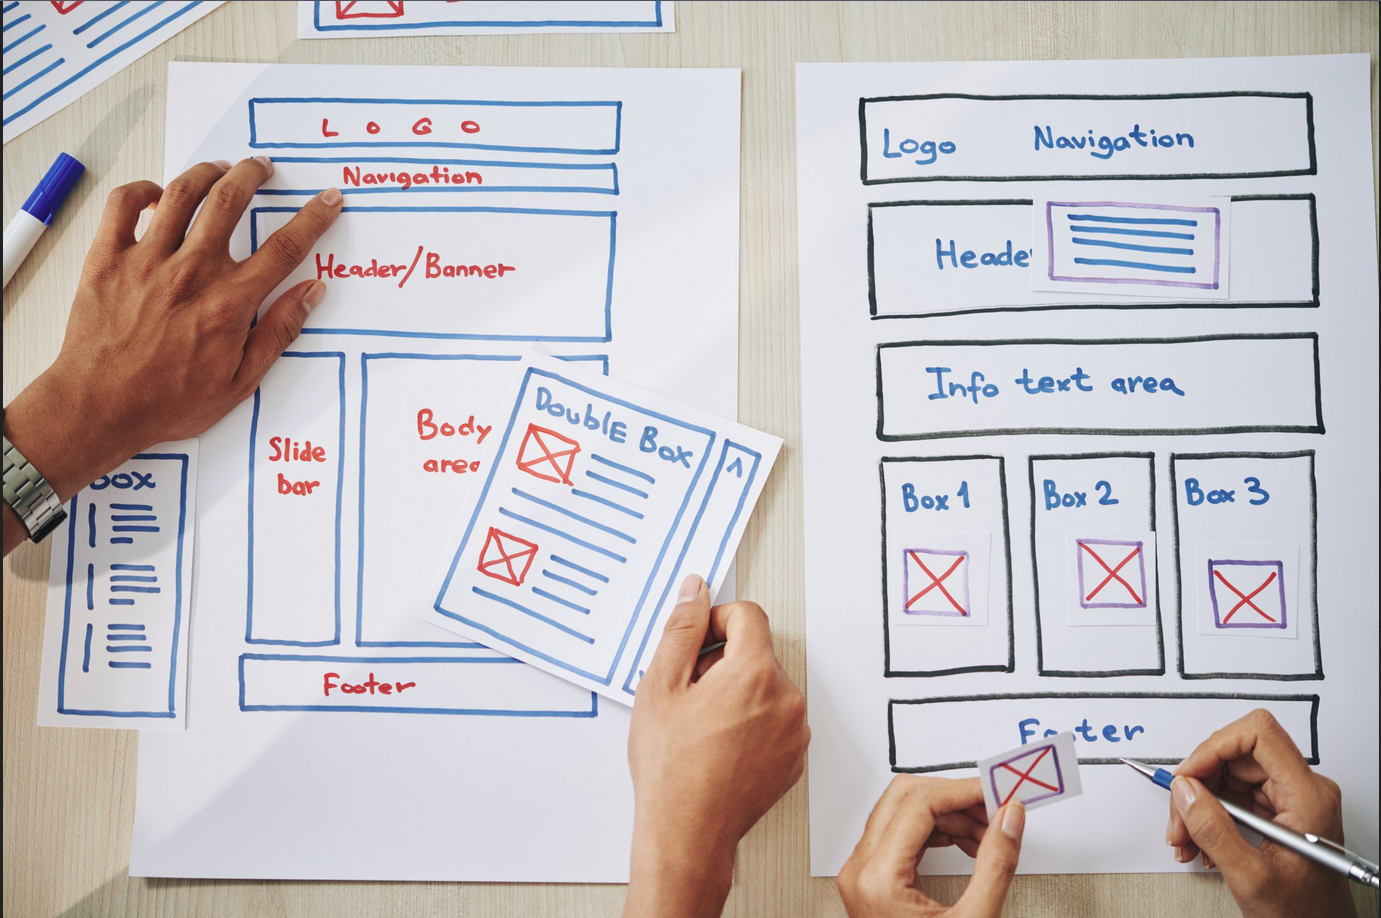 LOGO
Navigation
Header/Banner
Slide
bar
Body
area
Double Box
Box
Footer
Logo Navigation
Heade
Info text area
Box 1 Box 2 Box 3
Footer